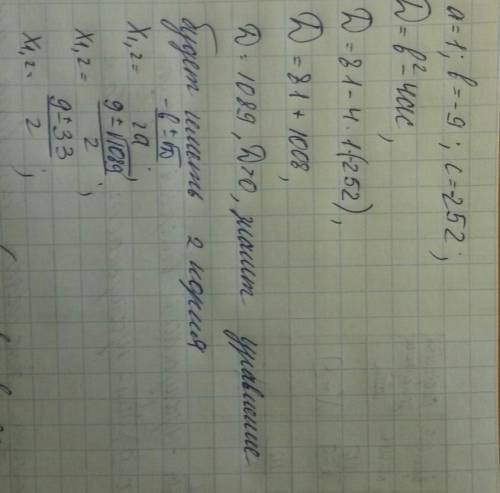 a=1; b=-9; c=-252;
D=b²-4ac,
D=81-4·1·(-252),
D=81+1008,
D=1089, D>0, значит уравнение
будет иметь 2 корня
x₁,₂= (-b±√D)/2a;
x₁,₂= (9±√1089)/2;
x₁,₂= (9±33)/2;